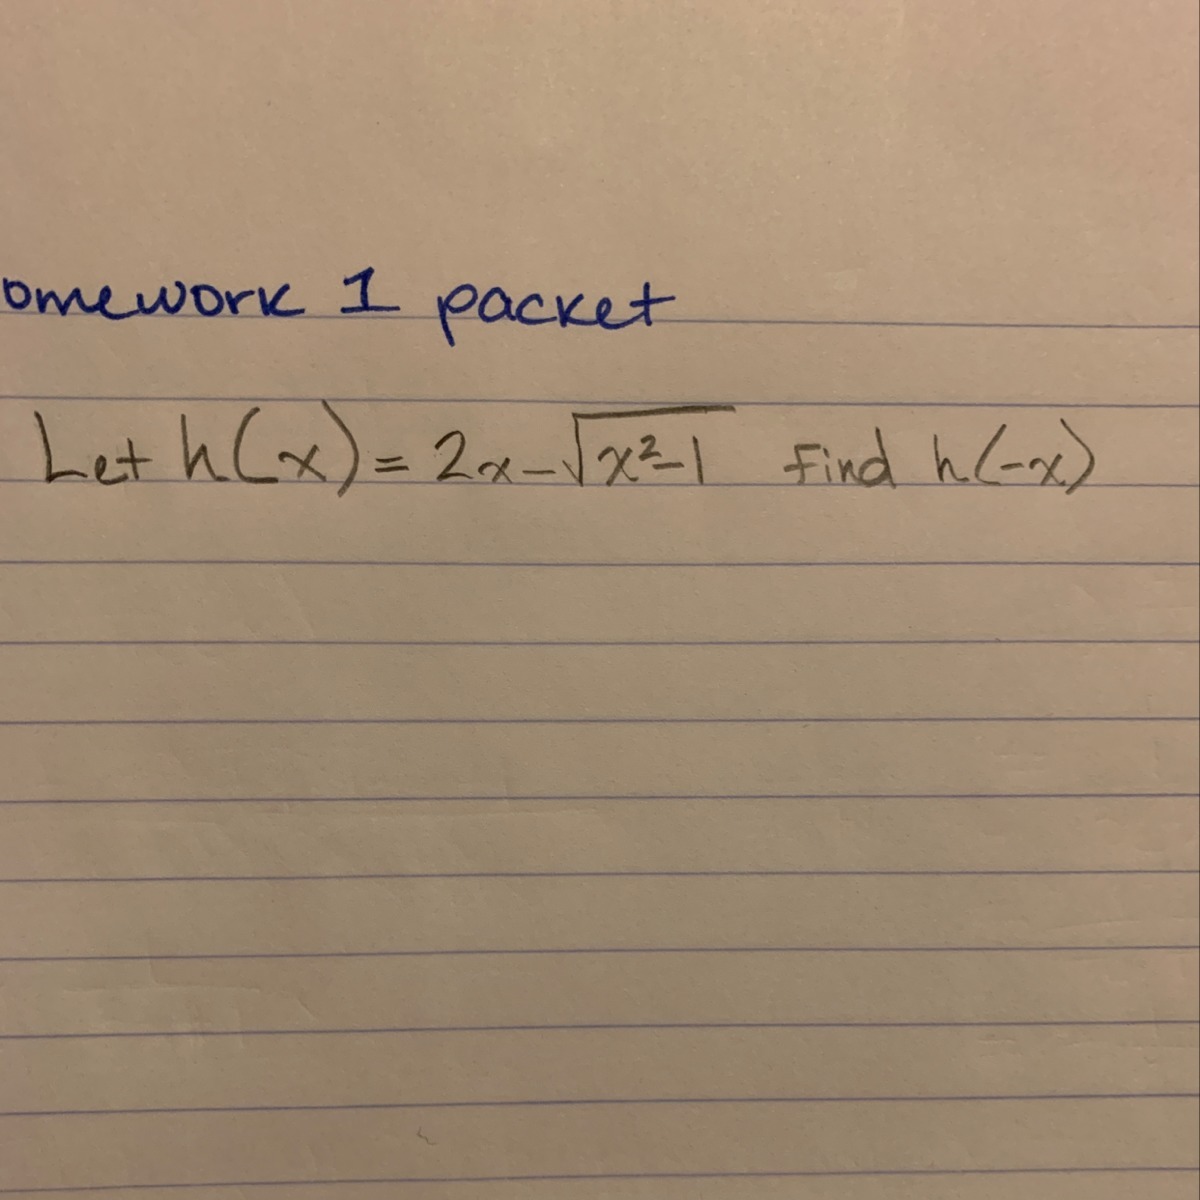 omework 1 packet
Let h(x) = 2x-√x²-1 find h(-x)